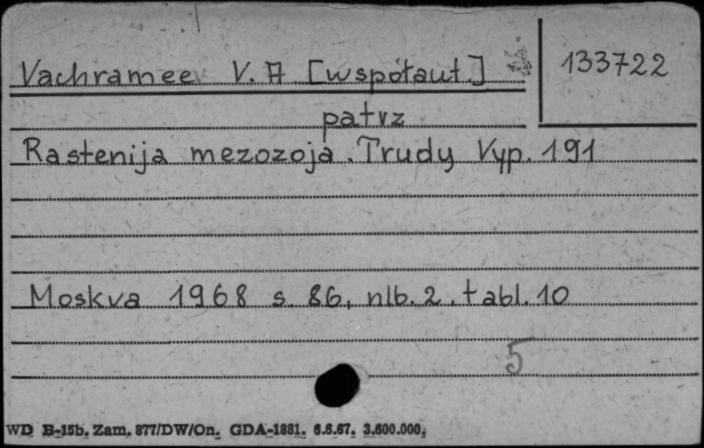 Vachrameev V. A [współaut.]
133722
patrz
Rastenija mezozoja. Trudy Vyp. 191
Moskva 1968 s. 86, nlb. 2. tabl. 10
5
WD B-15b, Zam. 877/DW/On. GDA-1881. 6.6.67. 3.600.000,